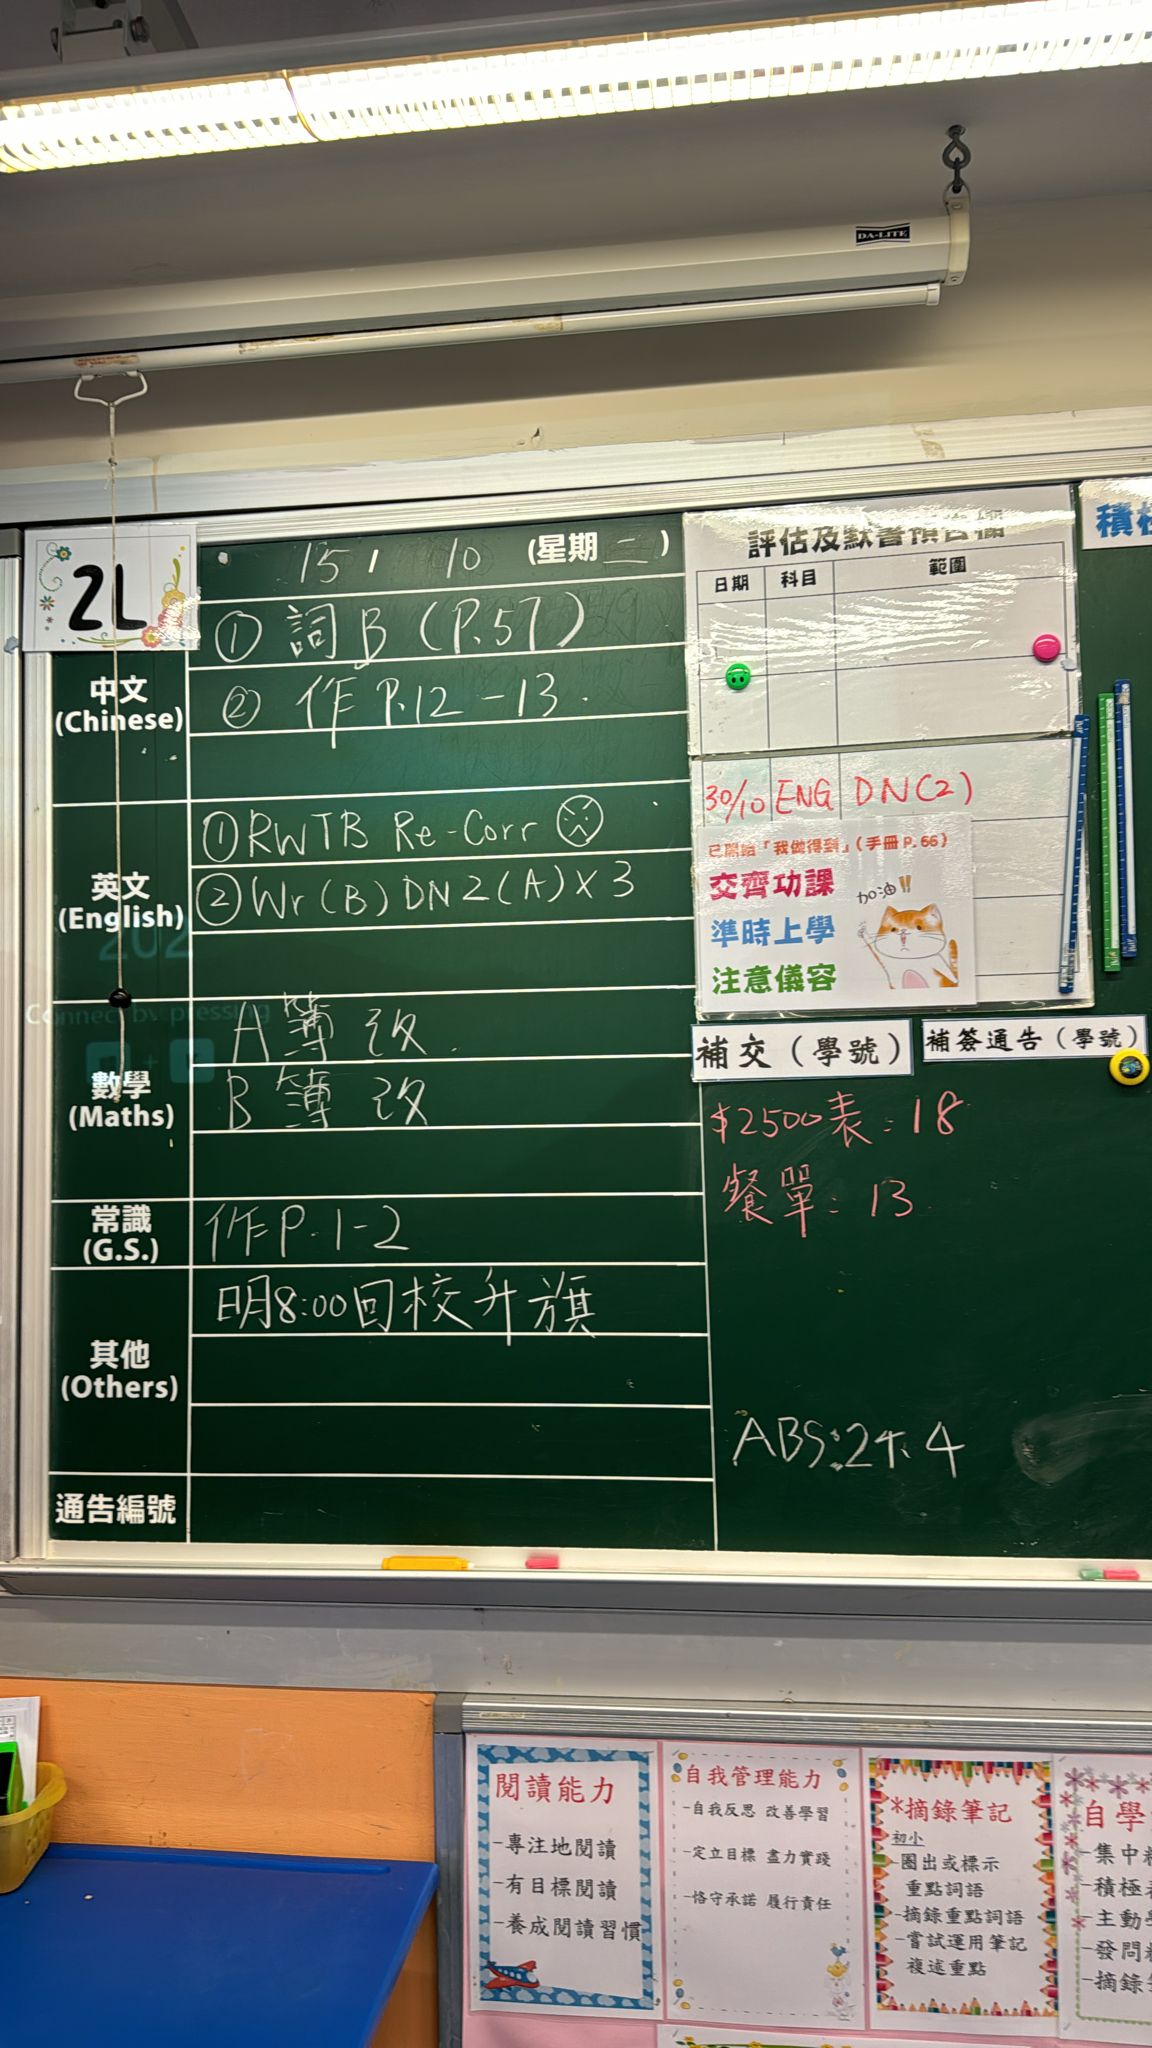 DA-LITE
2L
15 / 10 (星期二)
中文
(Chinese)
① 詞B (P.57)
② 作 P.12 - 13.
英文
(English)
① RWTB Re-Corr
② Wr (B) DN 2 (A) X 3
數學
(Maths)
A簿 改.
B簿 改
常識
(G.S.)
作P. 1-2
其他
(Others)
明8:00回校升旗
通告編號
Connect by pressing
評估及默書預告欄
日期 科目 範圍
30/10 ENG DN(2)
已開始「我做得到」(手冊 P. 66)
交齊功課
準時上學
注意儀容
加油!!
補交(學號)
補簽通告(學號)
$2500表: 18
餐單: 13
積
閱讀能力
-專注地閱讀
-有目標閱讀
-養成閱讀習慣
自我管理能力
-自我反思 改善學習
-定立目標 盡力實踐
-恪守承諾 履行責任
*摘錄筆記
初小
-圈出或標示
重點詞語
-摘錄重點詞語
-嘗試運用筆記
複述重點
自學
-集中
-積極
-主動
-發問
-摘錄